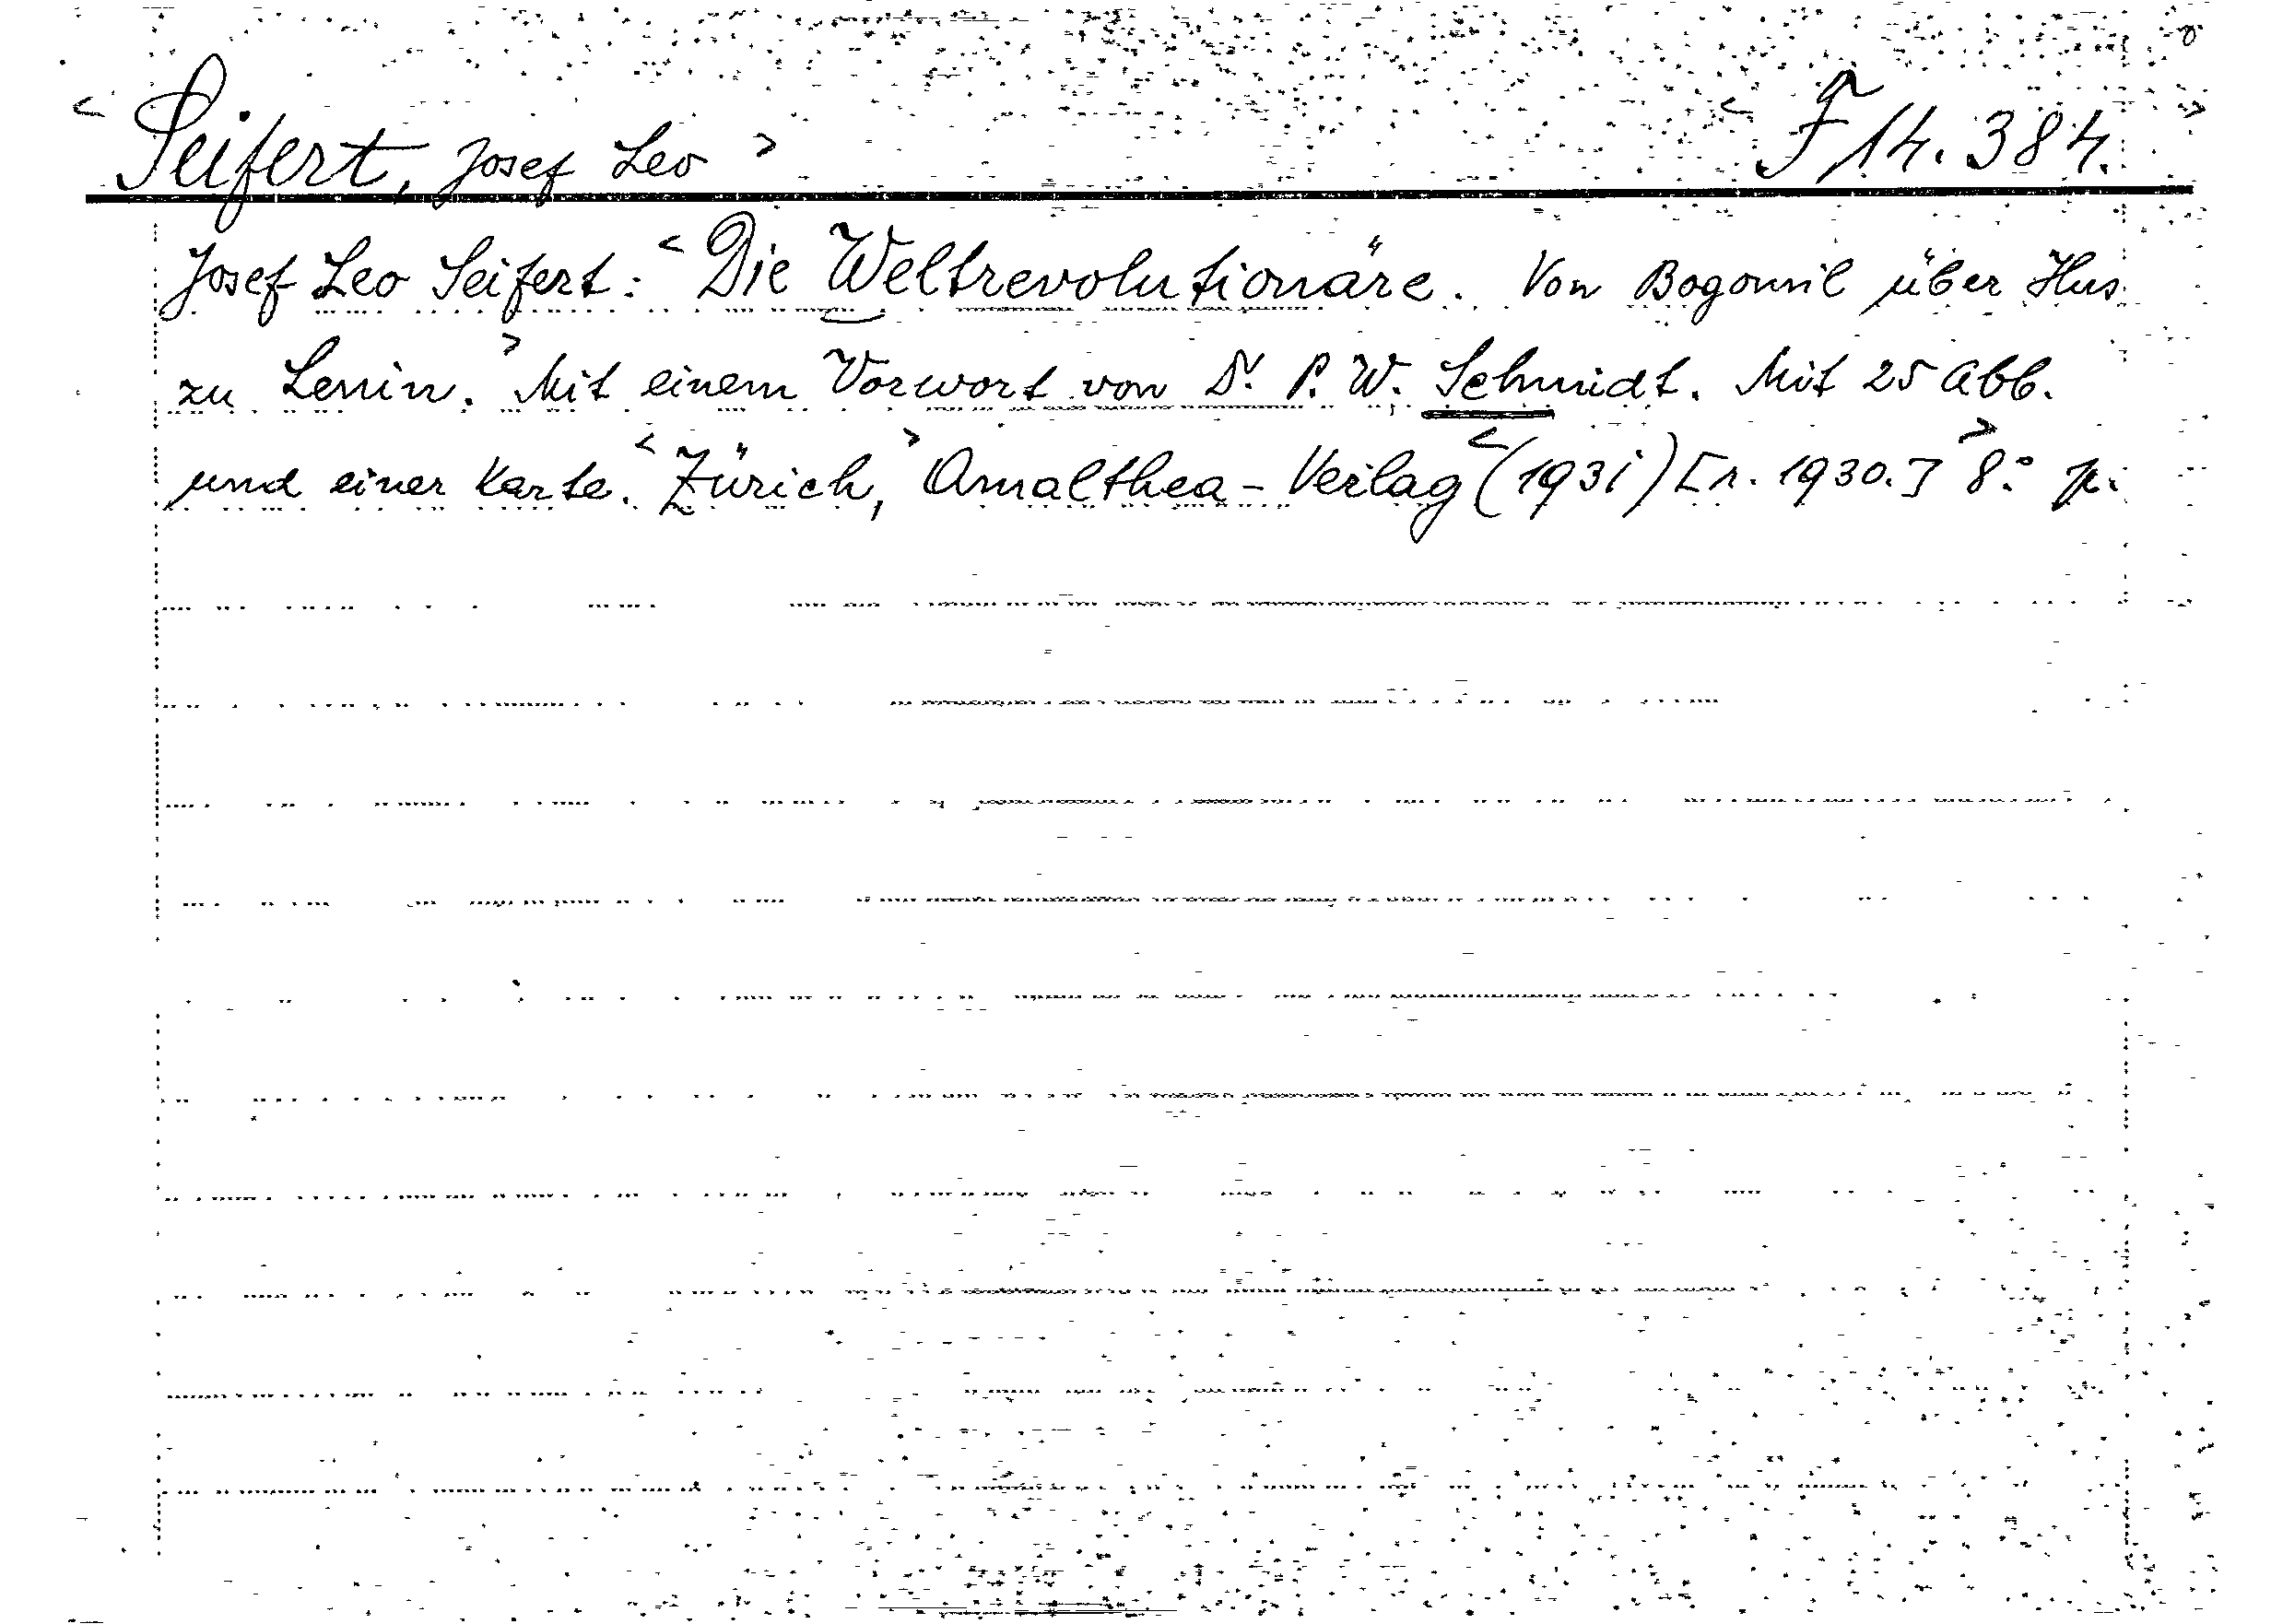 < Seifert, Josef Leo > < F 14.384. >
Josef Leo Seifert: < Die Weltrevolutionäre. Von Bogomil über Hus
zu Lenin. > Mit einem Vorwort von Dr. P. W. Schmidt. Mit 25 Abb.
und einer Karte. < Zürich, > Amalthea-Verlag < (1931) [r. 1930.] > 8° p.